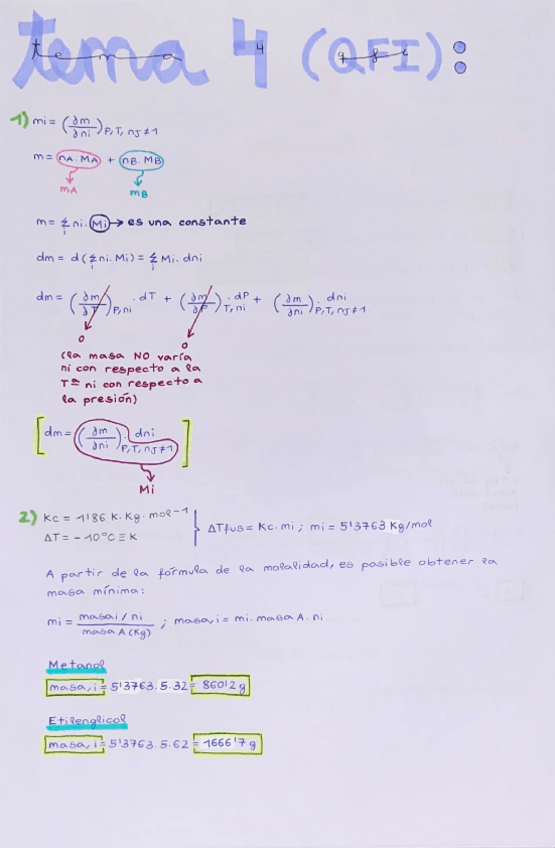 tema 4 (QFI):
tema 4 qfi
1) mi = (∂m/∂ni)P,T,nj≠1
m = nA.MA + nB.MB
mA mB
m = Σi ni.Mi → es una constante
dm = d(Σi ni.Mi) = Σi Mi.dni
dm = (∂m/∂T)P,ni . dT + (∂m/∂P)T,ni . dP + (∂m/∂ni)P,T,nj≠1 . dni
0 0
(la masa NO varía
ni con respecto a la
Tª ni con respecto a
la presión)
[dm = (∂m/∂ni)P,T,nj≠1 . dni]
Mi
2) Kc = 1'86 K.Kg.mol-1
ΔT = -10ºC ≡ K
ΔTfus = Kc.mi ; mi = 5'3763 Kg/mol
A partir de la fórmula de la molalidad, es posible obtener la
masa mínima:
mi = masai / ni / masa A (Kg) ; masa,i = mi.masa A.ni
Metanol
masa,i = 5'3763.5.32 = 860'2 g
Etilenglicol
masa,i = 5'3763.5.62 = 1666'7 g